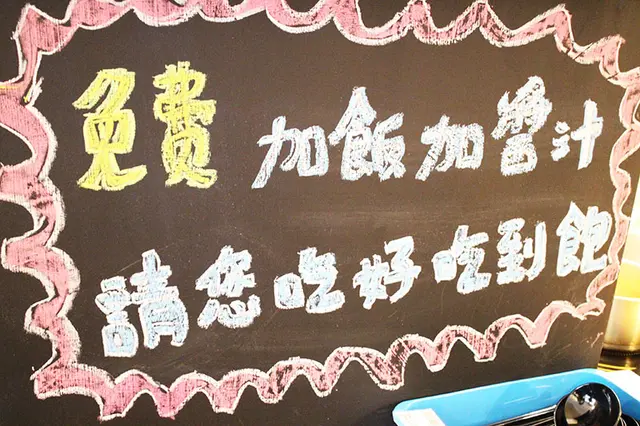 免费 加飯加醬汁
請您吃好吃到飽